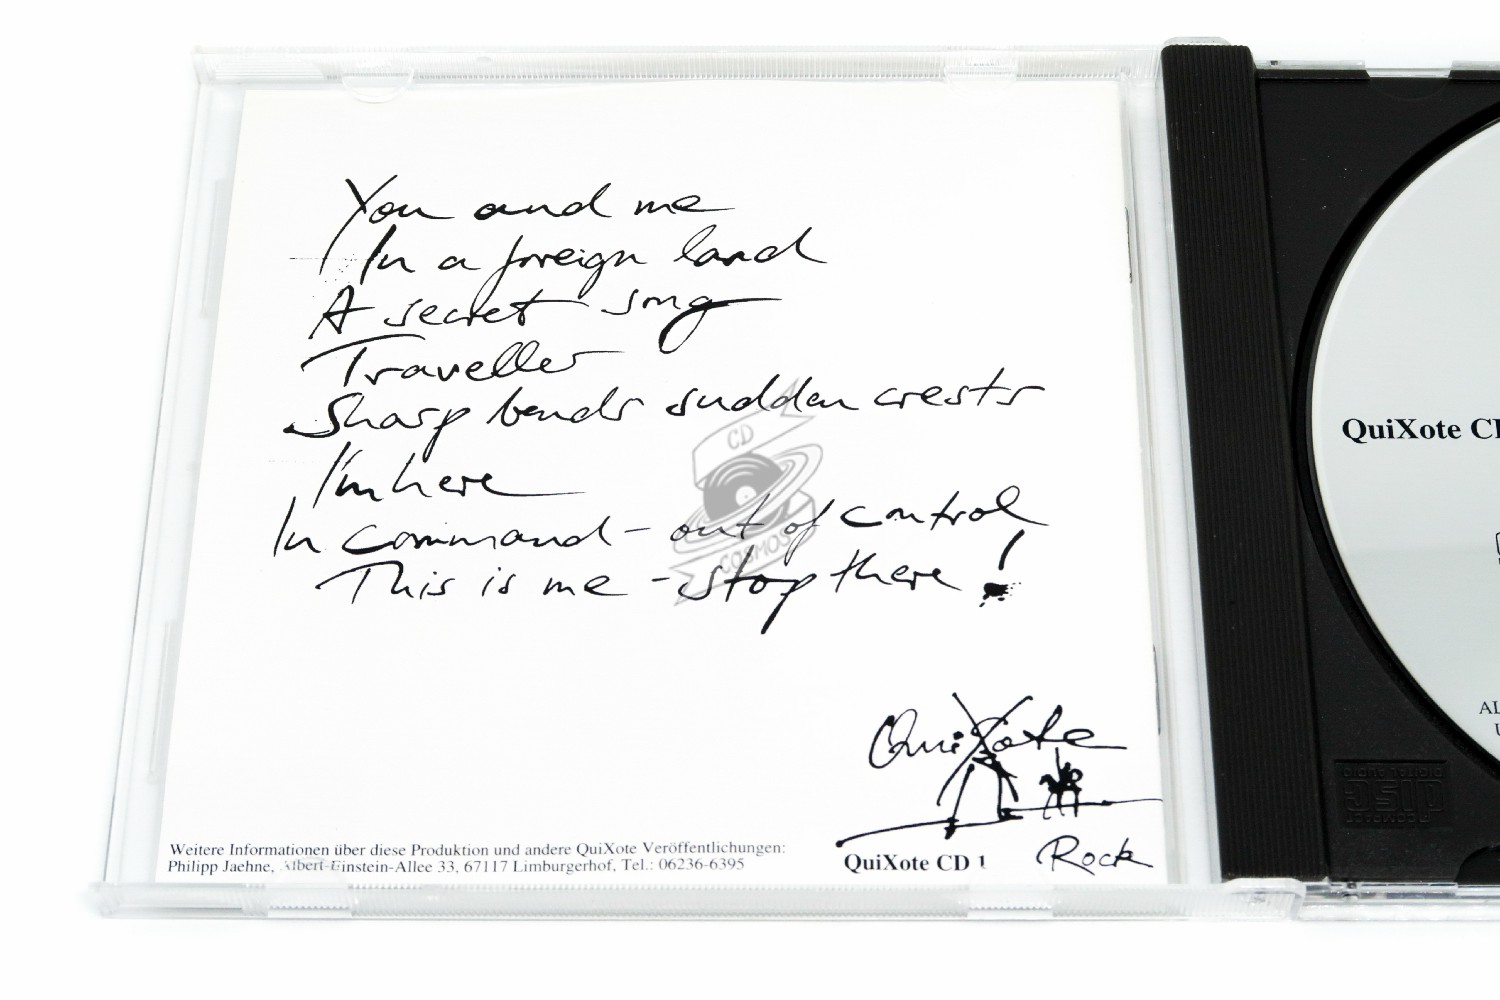 You and me
In a foreign land
A secret song
Traveller
Sharp bends sudden crests
I'm here
In command - out of control
This is me - stop there!
CD
COSMOS
QuiXote
Rock
QuiXote CD 1
Weitere Informationen über diese Produktion und andere QuiXote Veröffentlichungen:
Philipp Jaehne, Albert-Einstein-Allee 33, 67117 Limburgerhof, Tel.: 06236-6395
QuiXote CD
AL
U
COMPACT
disc
DIGITAL AUDIO